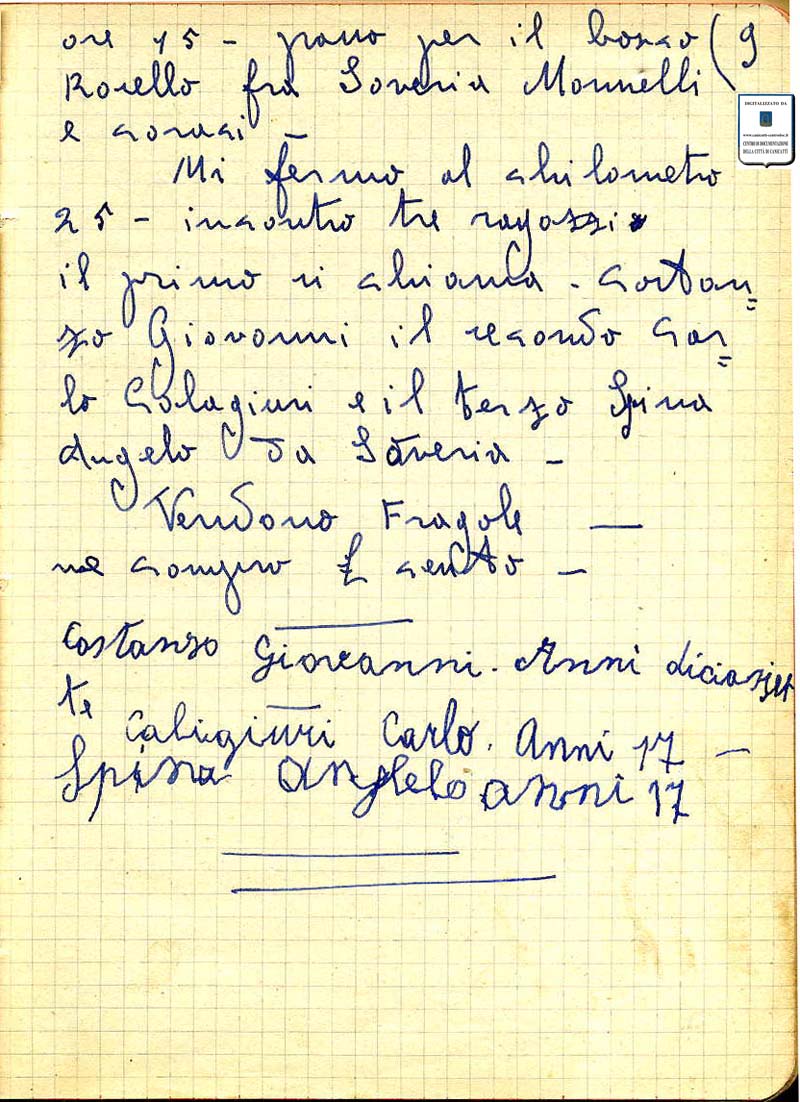 ore 15 - passo per il bosco (9
Rosello fra Soveria Monnelli
e Soraci -
Mi fermo al chilometro
25 - incontro tre ragazzi
il primo si chiama - Costan=
zo Giovanni il secondo Car=
lo Colagiuri e il terzo Spina
Angelo da Soveria -
Vendono Fragole —
ne compro £ cento -
Costanzo Giovanni. Anni diciasset
te
Caligiuri Carlo. Anni 17 -
Spina Anglelo anni 17
DIGITALIZZATO DA
CENTRO DI DOCUMENTAZIONE
DELLA CITTÀ DI CANICATTÌ